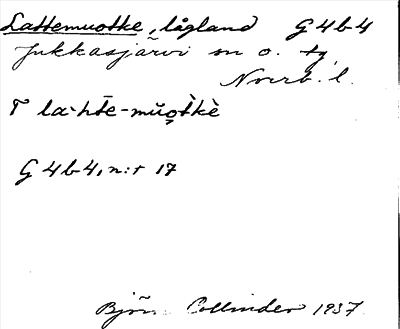 Lattemuotke, lågland G 4 b 4
Jukkasjärvi sn o. tg,
Norrb. l.
T la·hte-mŭo̬tkè
G 4 b 4, n:r 17
Björn Collinder 1937